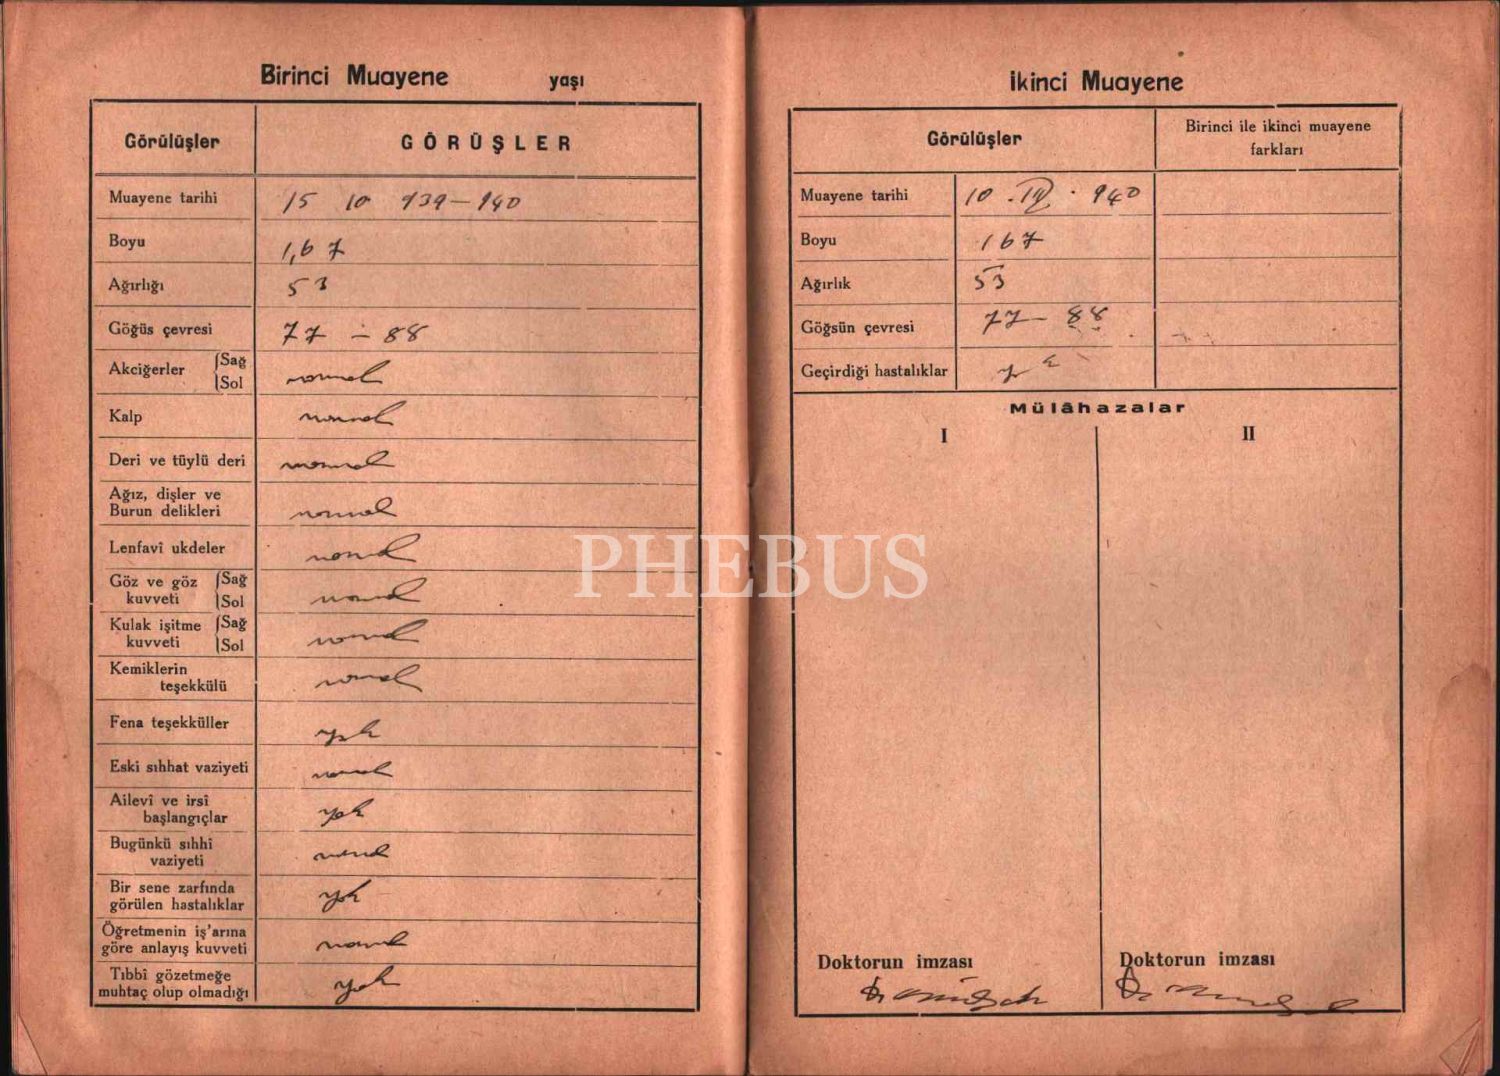 Birinci Muayene yaşı
Görülüşler GÖRÜŞLER
Muayene tarihi 15 10 939-940
Boyu 1,67
Ağırlığı 53
Göğüs çevresi 77 - 88
Akciğerler Sağ
Sol normal
Kalp normal
Deri ve tüylü deri normal
Ağız, dişler ve
Burun delikleri normal
Lenfavî ukdeler normal
Göz ve göz Sağ
kuvveti Sol normal
Kulak işitme Sağ
kuvveti Sol normal
Kemiklerin
teşekkülü normal
Fena teşekküller yok
Eski sıhhat vaziyeti normal
Ailevî ve irsî
başlangıçlar yok
Bugünkü sıhhî
vaziyeti normal
Bir sene zarfında
görülen hastalıklar yok
Öğretmenin iş'arına
göre anlayış kuvveti normal
Tıbbî gözetmeğe
muhtaç olup olmadığı yok
İkinci Muayene
Görülüşler Birinci ile ikinci muayene
farkları
Muayene tarihi 10 . . 940
Boyu 167
Ağırlık 53
Göğsün çevresi 77 - 88
Geçirdiği hastalıklar yok
Mülâhazalar
I II
Doktorun imzası Doktorun imzası
Dr Dr
PHEBUS